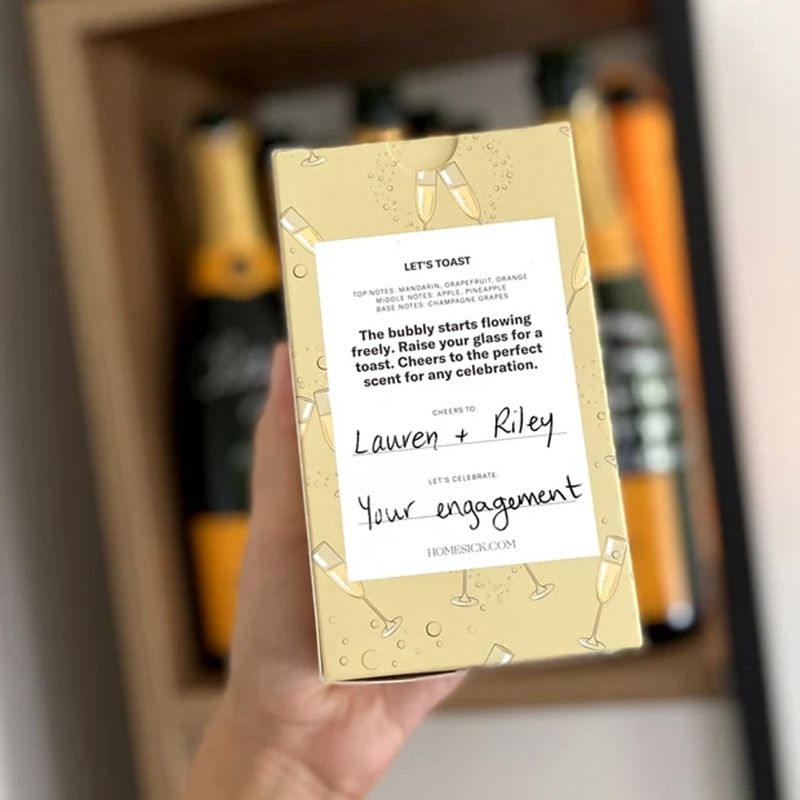 LET'S TOAST
TOP NOTES: MANDARIN, GRAPEFRUIT, ORANGE
MIDDLE NOTES: APPLE, PINEAPPLE
BASE NOTES: CHAMPAGNE GRAPES
The bubbly starts flowing
freely. Raise your glass for a
toast. Cheers to the perfect
scent for any celebration.
CHEERS TO:
Lauren + Riley
LET'S CELEBRATE:
Your engagement
HOMESICK.COM